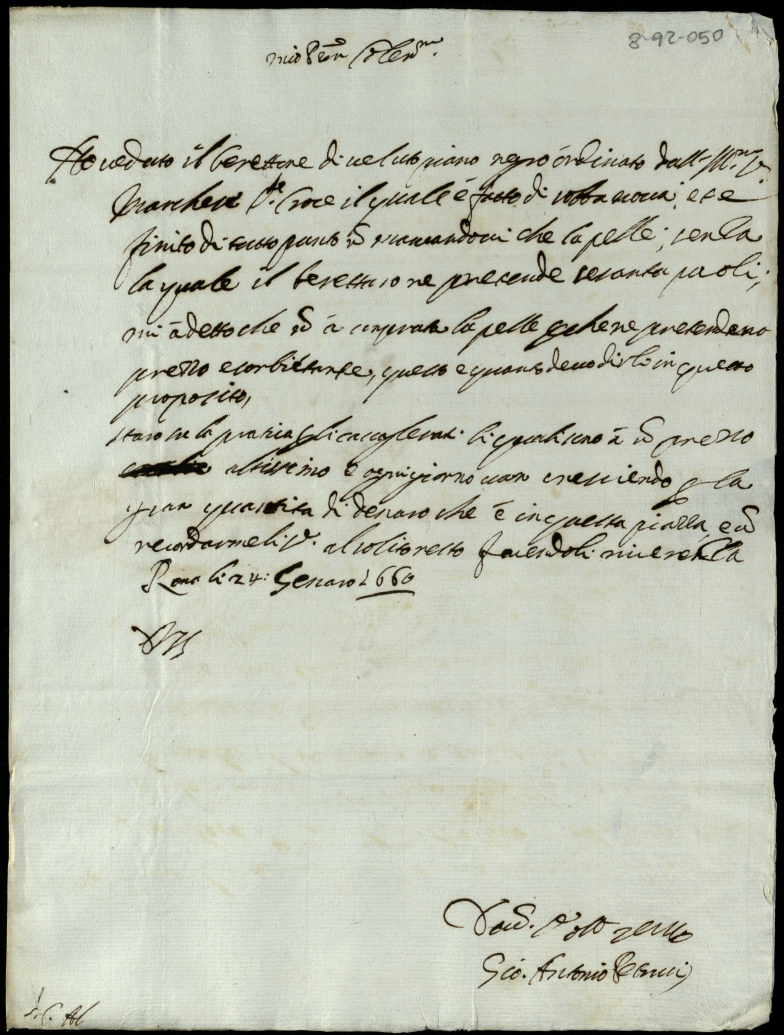 8-92-050
mio Pron Colen.mo
Ho veduto il berettone di veluto piano negro ordinato dall' Ill.mo S.
Marchese S.ta Croce il quale è fatto di robba nova, et è
finito di tutto punto non mancandovi che la pelle, senza
la quale il berettarone pretende sesanta paoli,
mi à detto che non à comprata la pelle perche ne pretendano
prezzo esorbittante, questo e quanto devo dirli in questo
proposito,
starò su la pratia gli li quali sono à un prezzo
altissimo e ogni giorno van crescendo per la
gran quantita di denaro che è in questa piazza, e con
recordarmeli S. al solito resto facendoli riverenza
Roma li 24: Genaro 1660
Gio. Antonio